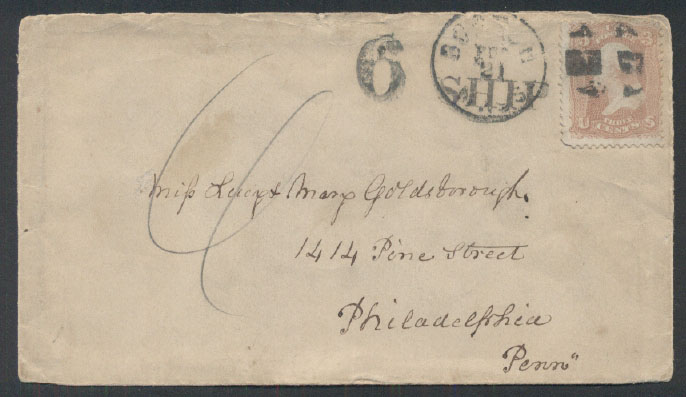 6
BOSTON
21
U THREE S
CENTS
Miss Lucy & Mary Goldsborough.
1414 Pine Street
Philadelphia
Penn"